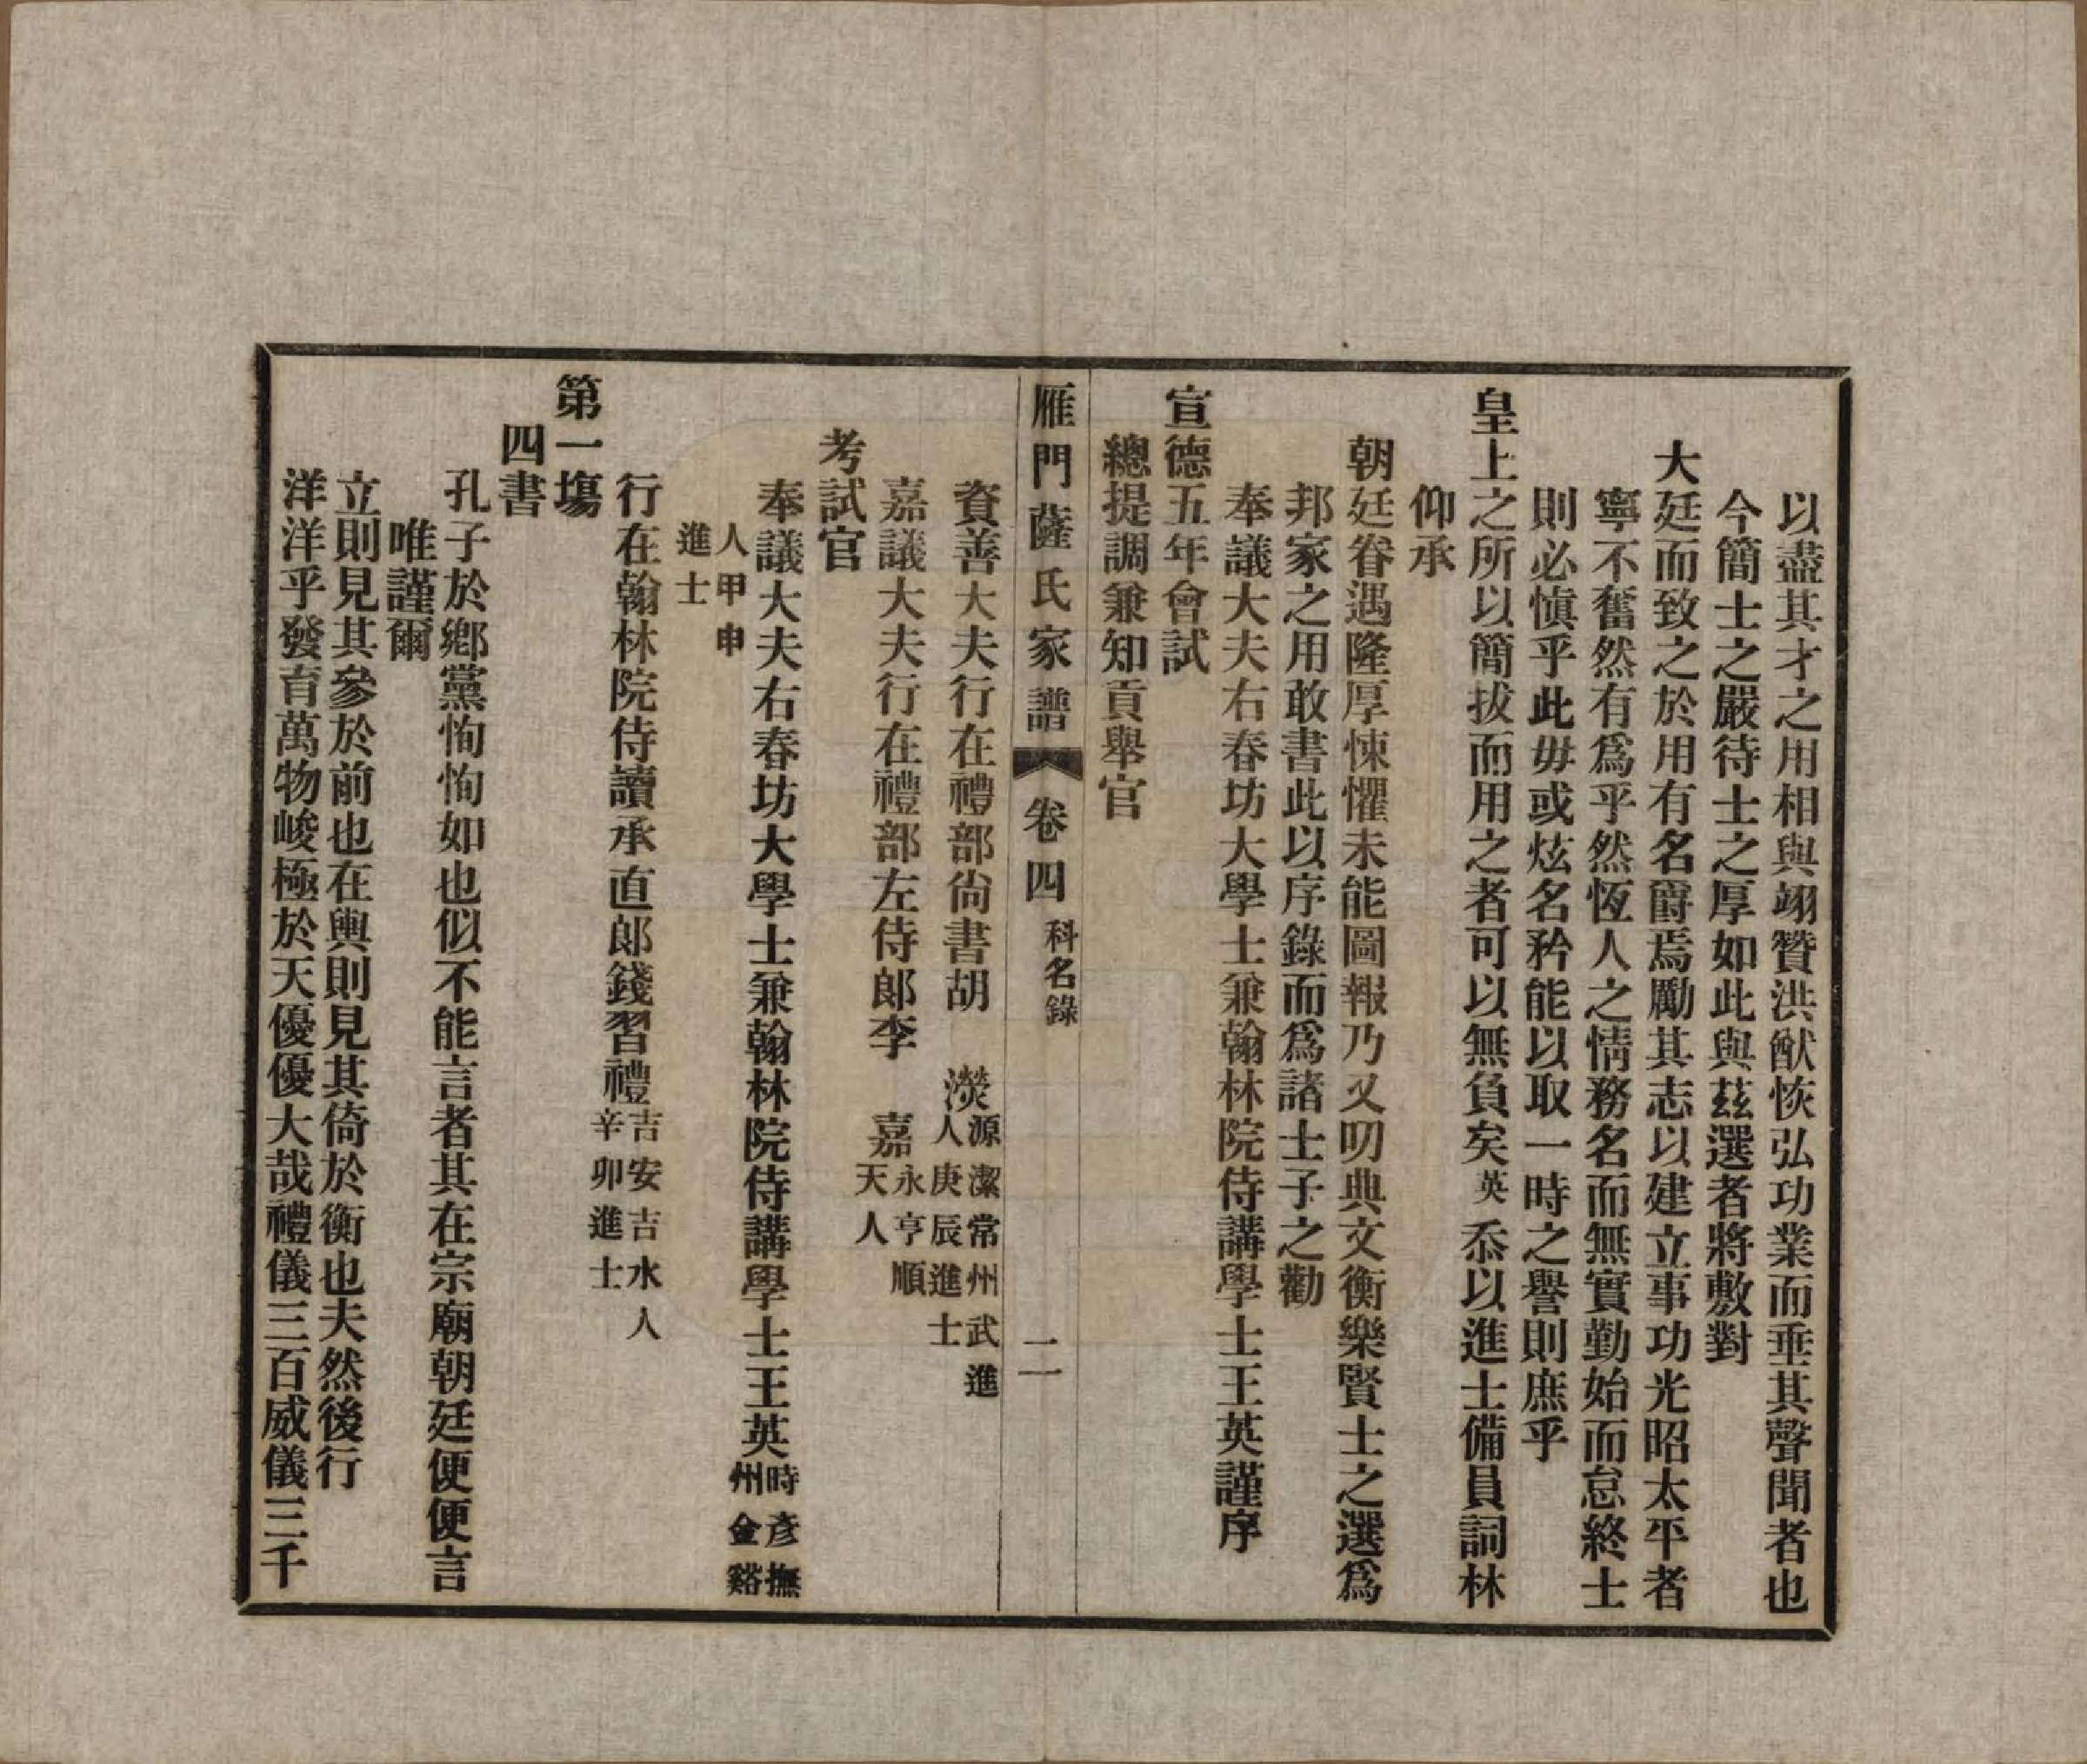 以盡其才之用相與翊贊洪猷恢弘功業而垂其聲聞者也
今簡士之嚴待士之厚如此與茲選者將敷對
大廷而致之於用有名爵焉勵其志以建立事功光昭太平者
寧不奮然有爲乎然恆人之情務名而無實勤始而怠終士
則必愼乎此毋或炫名矜能以取一時之譽則庶乎
皇上之所以簡拔而用之者可以無負矣英忝以進士備員詞林
仰承
朝廷眷遇隆厚悚懼未能圖報乃又叨典文衡樂賢士之選爲
邦家之用敢書此以序錄而爲諸士子之勸
奉議大夫右春坊大學士兼翰林院侍講學士王英謹序
宣德五年會試
總提調兼知貢舉官
雁門薩氏家譜 卷四 科名錄 二
資善大夫行在禮部尙書胡 濙 源潔常州武進人庚辰進士
嘉議大夫行在禮部左侍郞李 嘉 永亨順天人
考試官
奉議大夫右春坊大學士兼翰林院侍講學士王英 時彥撫州金谿
人甲申進士
行在翰林院侍讀承直郞錢習禮 吉安吉水人辛卯進士
第一塲
四書
孔子於鄉黨恂恂如也似不能言者其在宗廟朝廷便便言
唯謹爾
立則見其參於前也在輿則見其倚於衡也夫然後行
洋洋乎發育萬物峻極於天優優大哉禮儀三百威儀三千